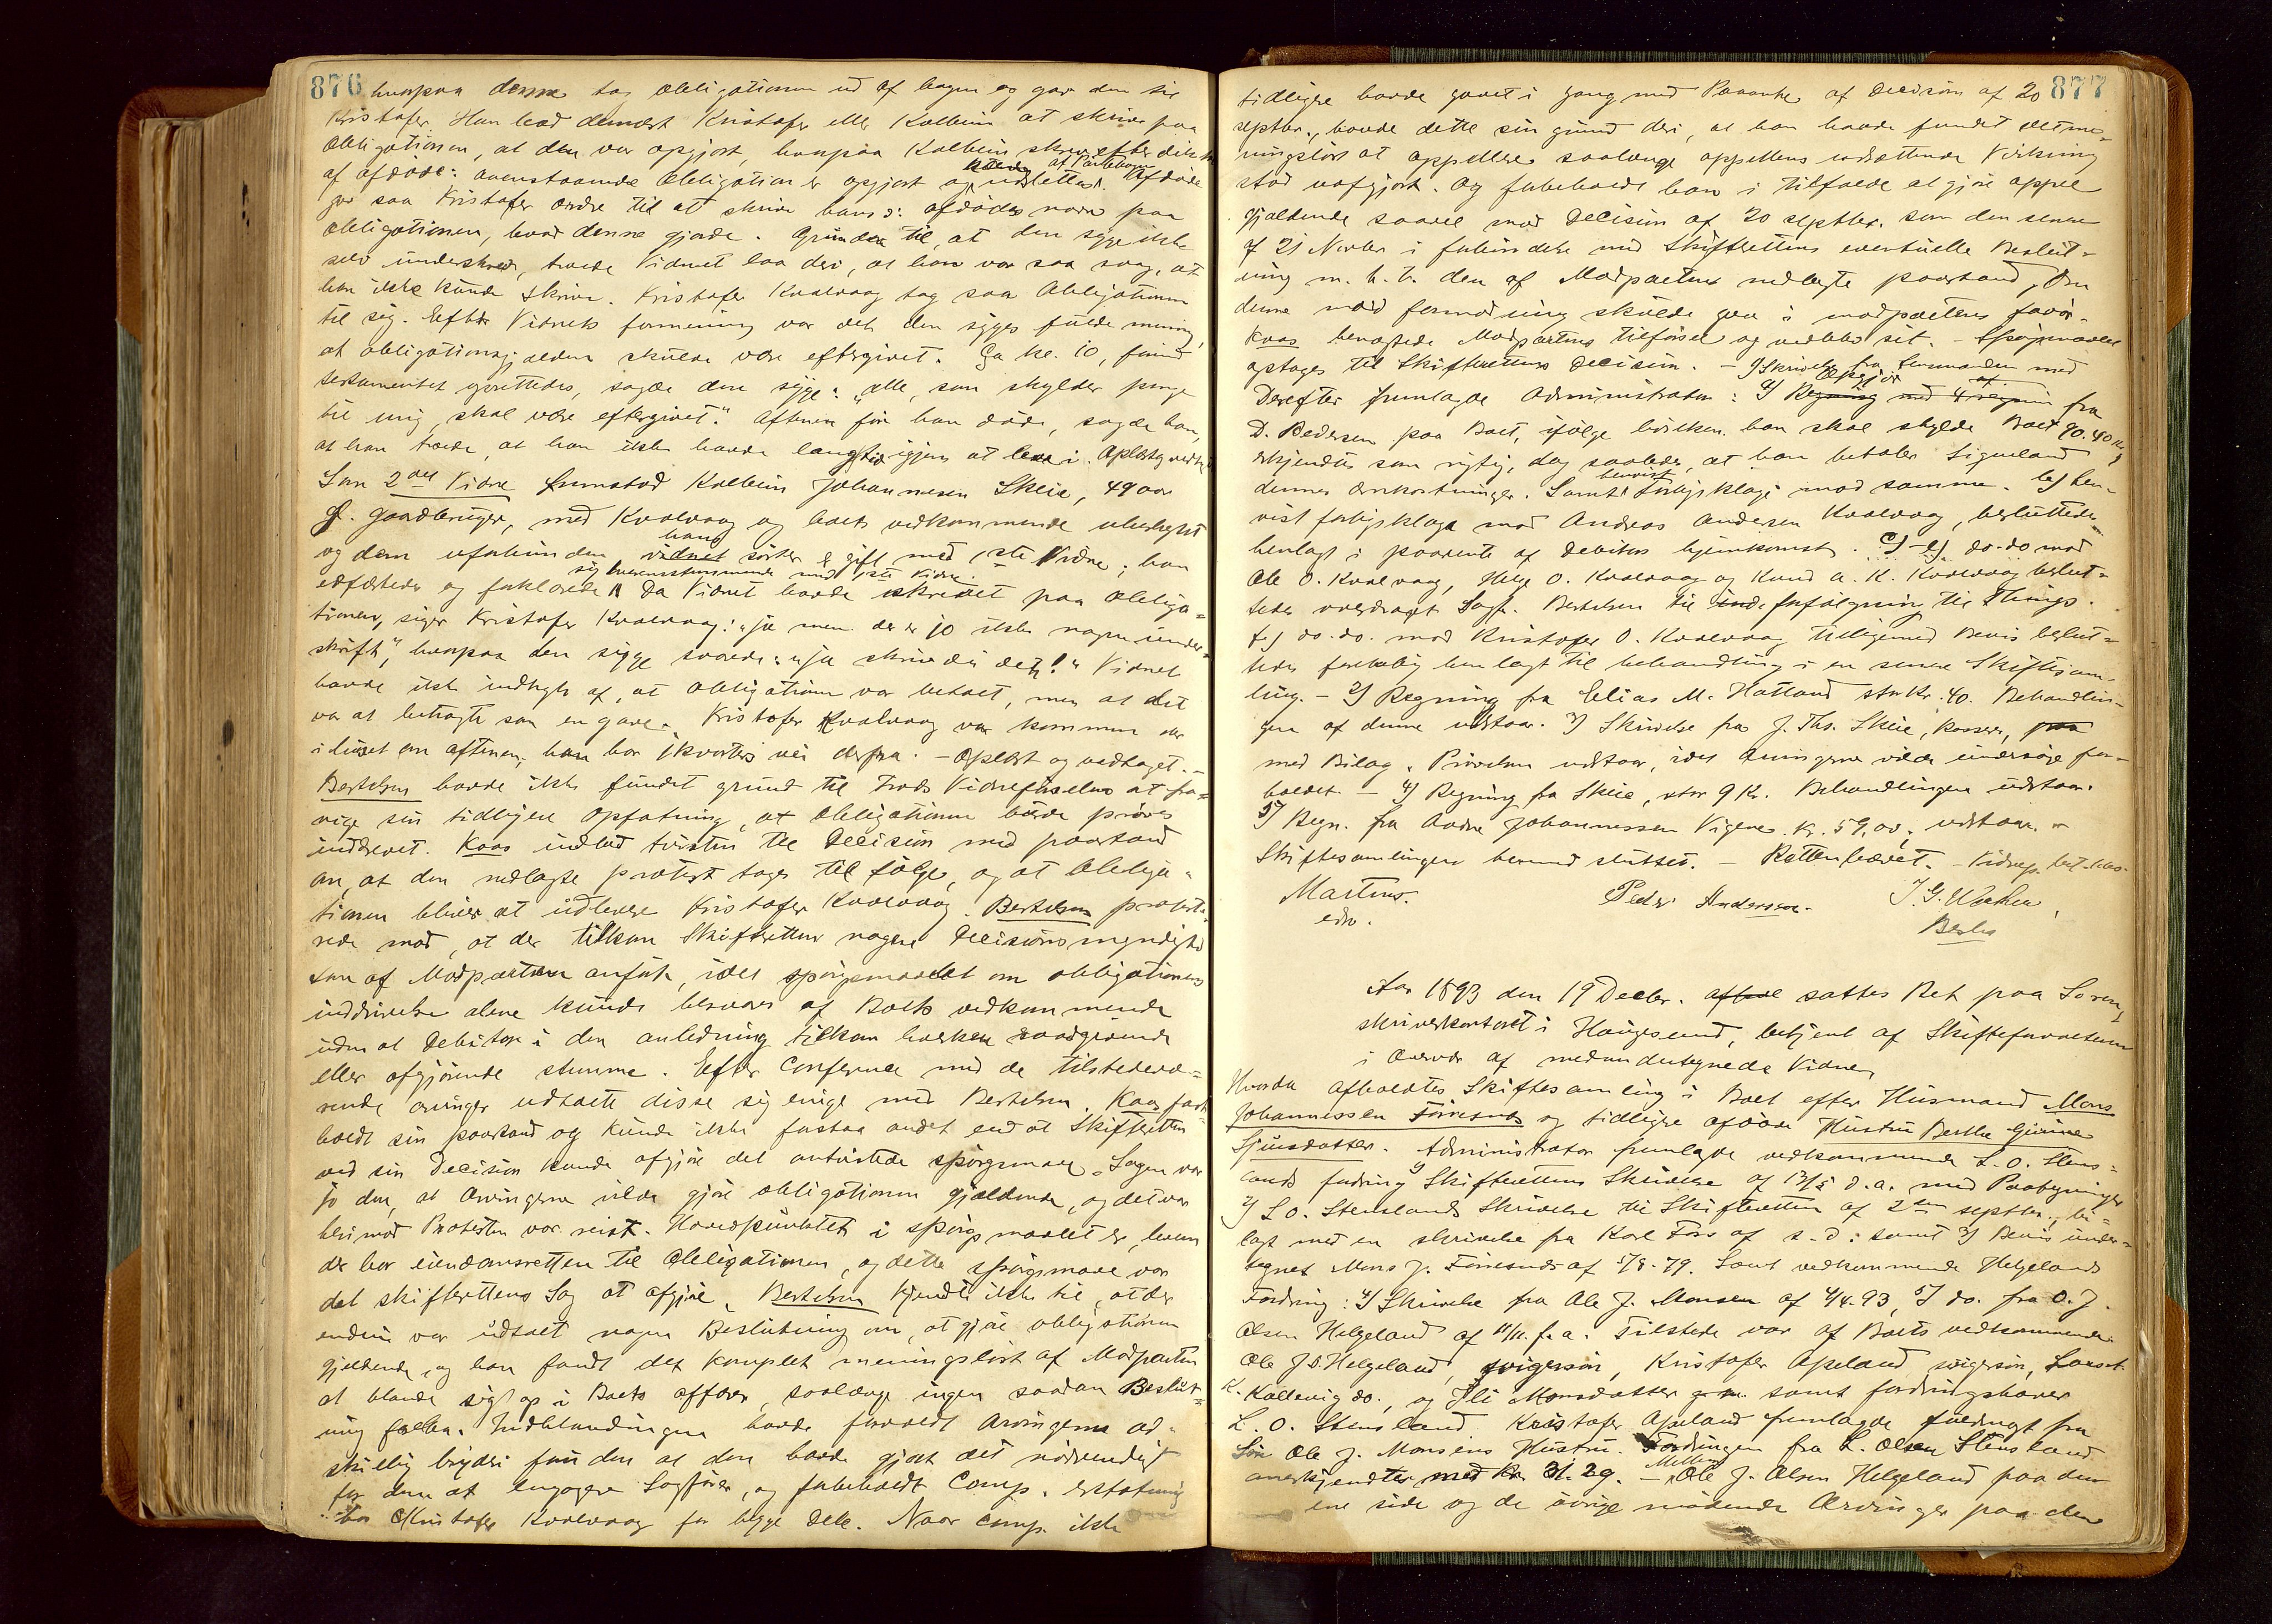 876
hvorpaa denne tog obligationen ud af bogen og gav den til
Kristofer. Han bad dernæst Kristofer eller Kolbein at skrive paa
obligationen, at den var opgjort, hvorpaa Kolbein skrev efter diktat
af afdøde: ovenstaaende obligation er opgjort og udslettes af Pantebogen. Afdøde
gav saa Kristofer ordre til at skrive hans ɔ: afdødes navn paa
obligationen, hvad denne gjorde. Grunden til, at den syge ikke
selv underskrev, troede Vidnet laa deri, at han var saa svag, at
han ikke kunde skrive. Kristofer Kvalvaag tog saa Obligationen
til sig. Efter Vidnets formening var det den syges fulde mening,
at obligationsgjælden skulde være eftergivet. Ca kl. 10, førend
testamentet oprettedes, sagde den syge: "alle, som skylder penge
til mig, skal være eftergivet." Aftenen før han døde, sagde han,
at han troede, at han ikke havde lang tid igjen at leve i. Oplæst og vedtaget
Som 2det Vidne fremstod Kolbein Johannesen Skeie, 49 aar
g. gaardbruger, med Kvalvaag og boets vedkommende ubeslægtet
og dem uforbunden, hans søster er gift med 1ste Vidne; han
edfæstedes og forklarede sig overensstemmende med 1ste Vidne. Da Vidnet havde skrevet paa obliga-
tionen, siger Kristofer Kvalvaag: "ja men der er jo ikke nogen under-
skrift", hvorpaa den syge svarede: "ja skriv du det!" Vidnet
havde ikke indtryk af, at obligationen var betalt, men at det
var at betragte som en gave. Kristofer Kvalvaag var kommen der
i huset om aftenen, han bor 1 kvarters vei derfra. - Oplæst og vedtaget. -
Bertelsen havde ikke fundet grund til trods Vidneførselen at fra-
vige sin tidligere opfatning, at obligationen burde prøves
inddrevet. Kaas indlod tvisten til Decision med paastand
om, at den nedlagte protest tages til følge, og at obliga-
tionen bliver at udlevere Kristofer Kvalvaag. Bertelsen proteste-
rede mod, at der tilkom Skifteretten nogen Decisionsmyndighed
som af Modparten anført, idet spørgsmaalet om obligationens
inddrivelse alene kunde besvares af Boets vedkommende
uden at Debitor i den anledning tilkom hverken raadgivende
eller afgjørende stemme. Efter Conference med de tilstedevæ-
rende arvinger udtalte disse sig enige med Bertelsen. Kaas fast-
holdt sin paastand og kunde ikke forstaa andet end at Skifteretten
ved sin Decision kunde afgjøre det omtvistede spørgsmaal. Sagen var
jo den, at Arvingerne vilde gjøre obligationen gjældende, og det var
herimod Protesten var reist. Hovedpunktet i spørgsmaalet er, hvem
der har eiendomsretten til Obligationen, og dette spørgsmaal var
det skifterettens Sag at afgjøre. Bertelsen kjendte ikke til, at der
endnu var udtalt nogen Beslutning om, at gjøre obligationen
gjældende, og han fandt det komplet meningsløst af Modparten
at blande sig op i Boets affærer, saalænge ingen saadan Beslut-
ning falden. Indblandingen havde forvoldt Arvingerne ad-
skillig bryderi foruden at den havde gjort det nødvendigt
for dem at engagere Sagfører, og forbeholdt Comp. erstatning
hos Kristofer Kvalvaag for begge dele. Naar Comp. ikke
877
tidligere havde gaaet i gang med Paaanke af Decision af 20
septbr., havde dette sin grund deri, at han havde fundet det me-
ningsløst at appellere saalænge appellens udsættende Virkning
stod uafgjort. Og forbeholdt han i tilfælde at gjøre appel
gjældende saavel mod Decision af 20 septbr. som den senere
af 21 Novbr. i forbindelse med Skifterettens eventuelle Beslut-
ning m. h. t. den af Modparten nedlagte paastand, om
denne mod formodning skulde gaa i modpartens favør.
Kaas benegtede Modpartens tilførsel og vedblev sit. - Spørgsmaalet
optages til Skifterettens Decision. - 
Derefter fremlagde Administrator: 1) Skrivelse fra Lensmanden med Opgjør af fra
D. Pedersen paa Boet, ifølge hvilken han skal skylde Boet 90.40 Kr,
erkjendtes som rigtig, dog saaledes, at han betaler Sigueland
dennes omkostninger. Samt henvist forligsklage mod samme. b) hen-
vist forligsklage mod Andreas Andersen Kvalvaag, besluttedes
henlagt i paavente af Debitors hjemkomst. c)-e) do.-do mod
Ole O. Kvalvaag, Helge O. Kvalvaag og Knud A. K. Kvalvaag beslut-
tedes overdraget Sagf. Bertelsen til forfølgning til Things.
f.) do.-do. mod Kristofer O. Kvalvaag tilligemed Bevis beslut-
tedes foreløbig henlagt til behandling i en senere Skiftesam-
ling. - 2) Regning fra Elias M. Hatland stor Kr. 40. Behandlin-
gen af denne udstaar. 3) Skrivelse fra J. Ths. Skeie, kasserer,
med Bilag. Prøvelsen udstaar, idet Arvingerne vilde undersøge for-
holdet. - 4) Regning fra Skeie, stor 9 Kr. Behandlingen udstaar.
5) Regn. fra Andre Johannessen Vigene Kr. 59,00, udstaar. -
Skiftesamlingen hermed sluttet. - Retten hævet. -
Martens.
edv.
Peder Andersen.
Bertes
Aar 1893 den 19 Decbr. sattes Ret paa Soren-
skriverkontoret i Haugesund, betjent af Skifteforvalteren
i Overvær af medundertegnede Vidner,
Hvorda afholdtes Skiftesamling i Boet efter Husmand Mons
Johannessen Førresnes og tidligere afdøde Hustru Berthe Gurine
Sjursdatter. Administrator fremlagde vedkommende L. O. Stens-
lands fordring 1) Skifterettens Skrivelse af 17/5 d.a. med Paategninger
2) L O. Stenslands Skrivelse til Skifteretten af 2den septbr., bi-
lagt med en skrivelse fra Karl Foss af s. d: samt 3) Bevis under-
tegnet Mons J. Førresnes af 5/8-79. Samt vedkommende Helgelands
Fordring: 4) Skrivelse fra Ole J. Monsen af 4/4-93, 5) do. fra O. J.
Olsen Helgeland af 11/11. f.a. Tilstede var af Boets vedkommende
Ole J. O. Helgeland, svigersøn, Kristofer Apeland, svigersøn,
K. Kallevig do., og Monsdatter samt fordringshaver
L. O. Stensland. Kristofer Apeland fremlagde fuldmagt fra
Søn Ole J. Monsens Hustru. Fordringen fra L. Olsen Stensland
anerkjendtes med Kr. 31.29. - Mellem Ole J. Olsen Helgeland paa den
ene side og de øvrige mødende Arvinger paa den